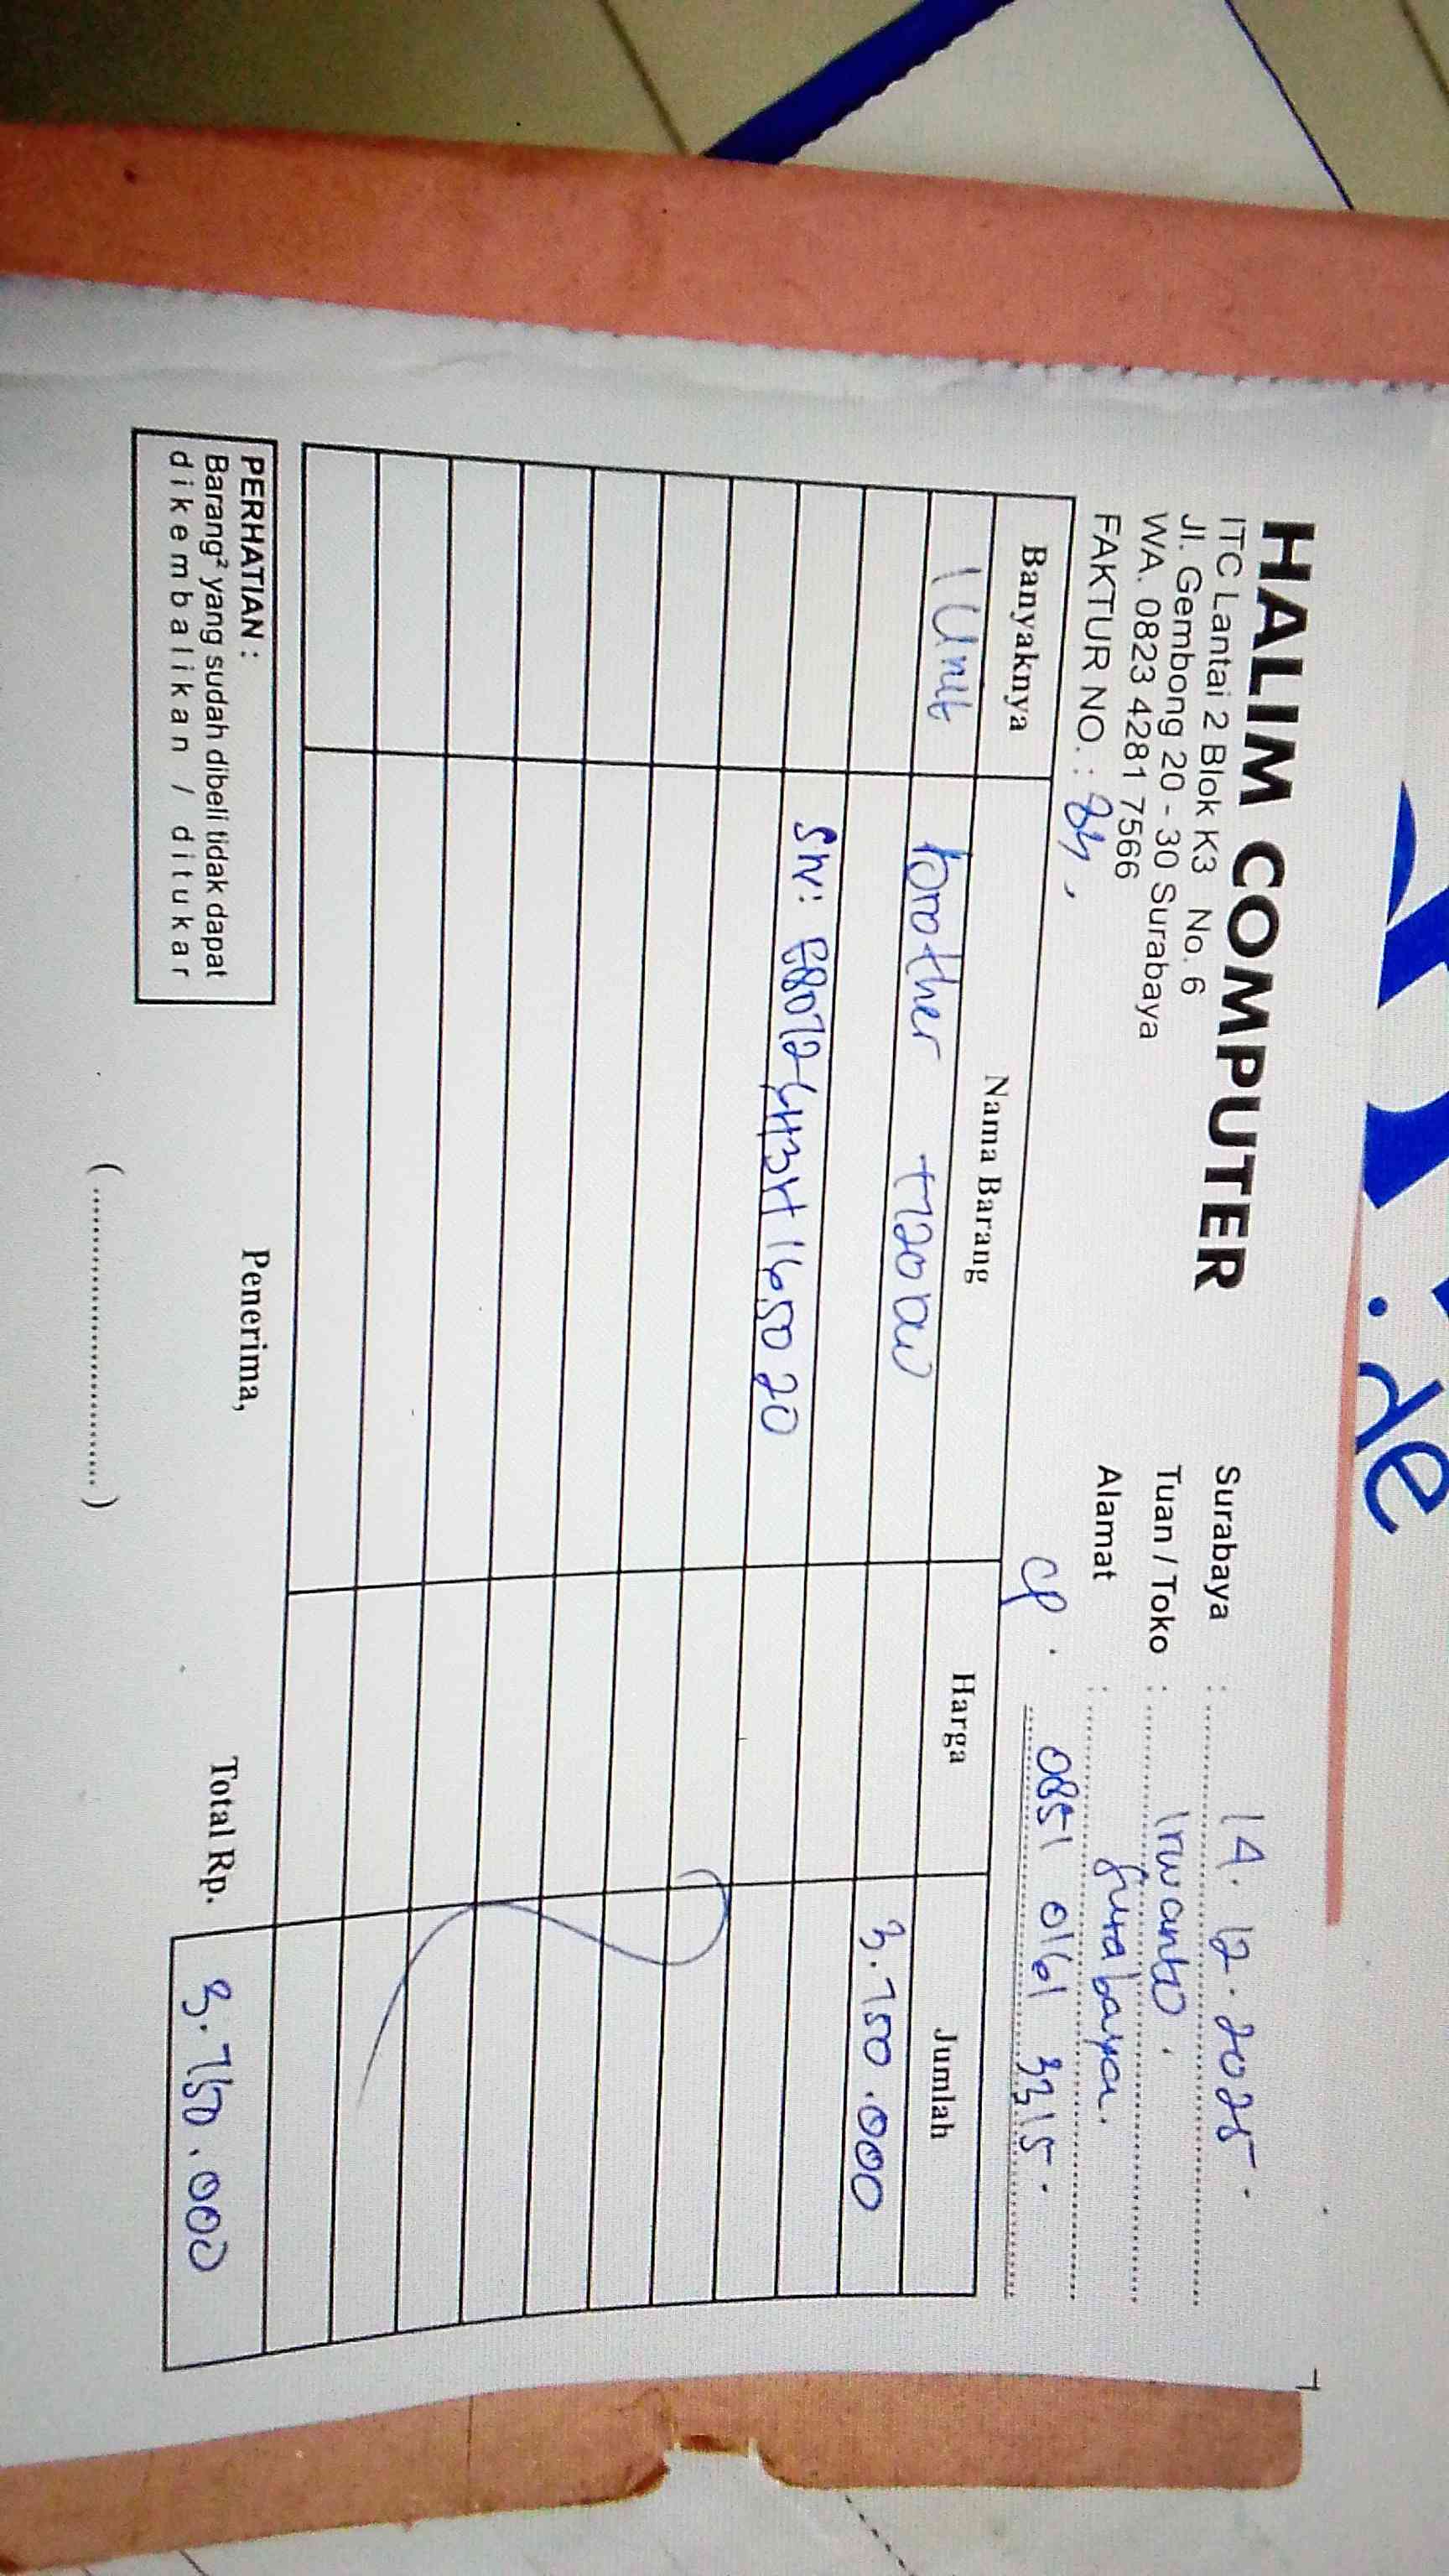 HALIM COMPUTER
ITC Lantai 2 Blok K3 No. 6
Jl. Gembong 20 - 30 Surabaya
WA. 0823 4281 7566
FAKTUR NO. :
Surabaya : 14. 12. 2025.
Tuan / Toko : Irwanto.
Alamat : Surabaya.
CP. 0851 0161 3315.
Banyaknya Nama Barang Harga Jumlah
1 Unit brother T720DW 3.750.000
SN: E80724H3H165020
PERHATIAN :
Barang² yang sudah dibeli tidak dapat
dikembalikan / ditukar
Penerima,
(..............................)
Total Rp. 3.750.000
de